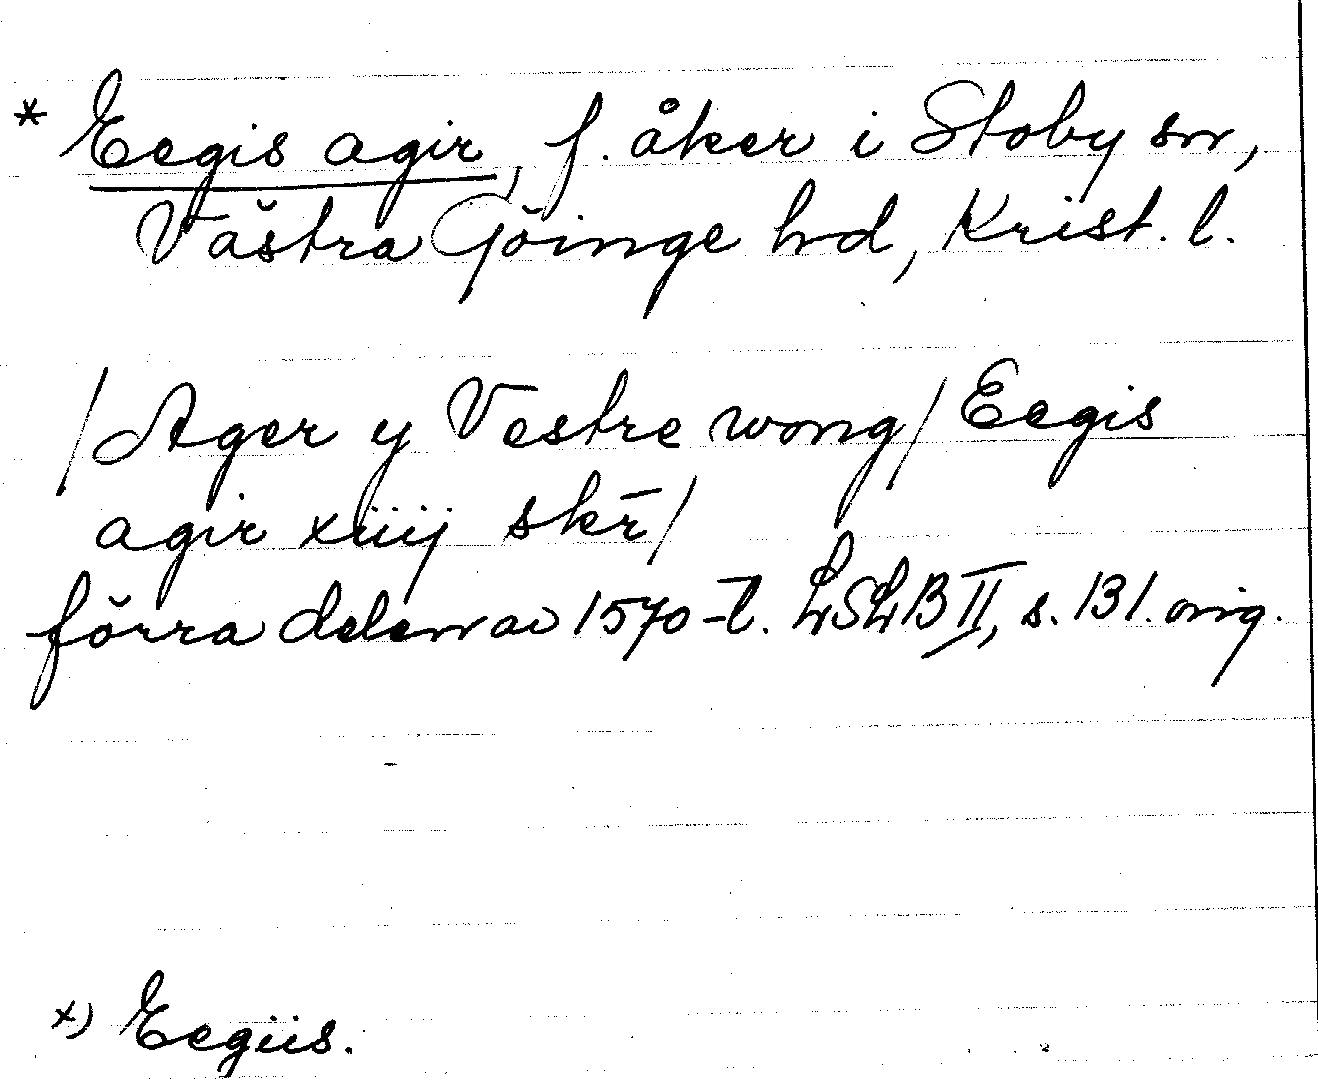 * Eegis agir, f. åker i Stoby sn,
Västra Göinge hd, Krist. l.
/Ager y Vestre wong/ Eegis
agir xiiij skr̄/
förra delen av 1570-t. LSLB II, s. 131. orig.
x) Eegiis.